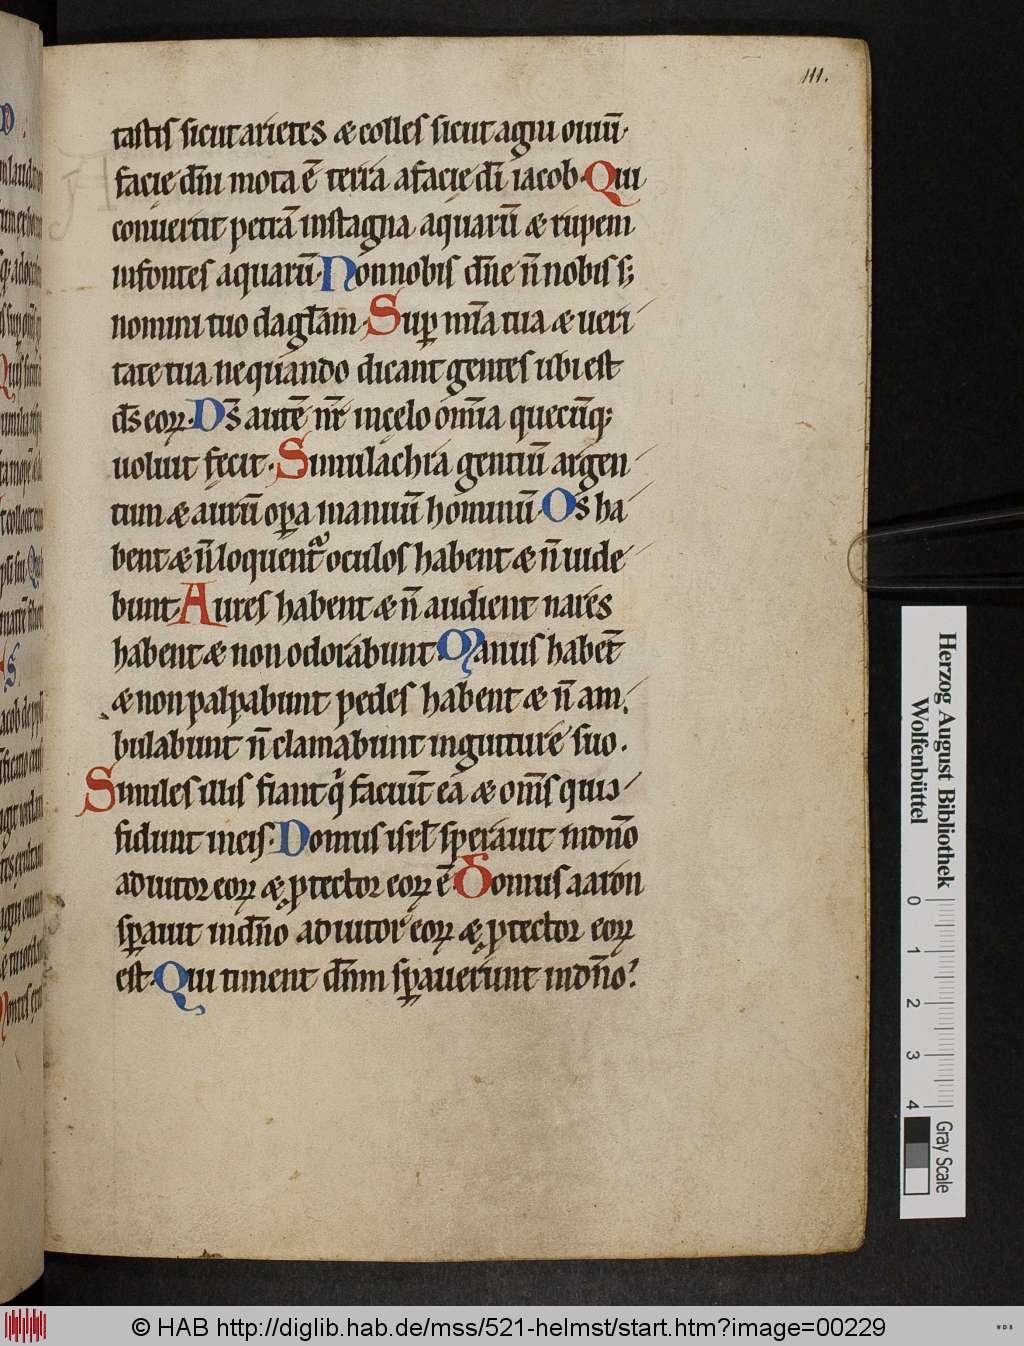 111.
tastis sicut arietes & colles sicut agni ouiū.
facie dn̄i mota ē terra a facie dī iacob. Qui
conuertit petrā in stagna aquarū & rupem
in fontes aquarū. Non nobis dn̄e n̄ nobis s;
nomini tuo da gl̄am. Sup mīa tua & ueri
tate tua ne quando dicant gentes ubi est
ds̄ eoꝝ. Ds̄ autē nr̄ in celo om̄ia quecūq;
uoluit fecit. Simulachra gentiū argen
tum & aurū oꝑa manuū hominū. Os ha
bent & n̄ loquent᷑ oculos habent & n̄ uide
bunt. Aures habent & n̄ audient nares
habent & non odorabunt. Manus habēt
& non palpabunt pedes habent & n̄ am
bulabunt n̄ clamabunt in gutture suo.
Similes illis fiant q̄ faciūt ea & om̄s qui
fidunt in eis. Domus isrl̄ sperauit in dn̄o
adiutor eoꝝ & ꝓtector eoꝝ ē. Domus aaron
sꝑauit in dn̄o adiutor eoꝝ & ꝓtector eoꝝ
est. Qui timent dn̄m sꝑauerunt in dn̄o.
Herzog August Bibliothek
Wolfenbüttel
0 1 2 3 4
Gray Scale
© HAB http://diglib.hab.de/mss/521-helmst/start.htm?image=00229